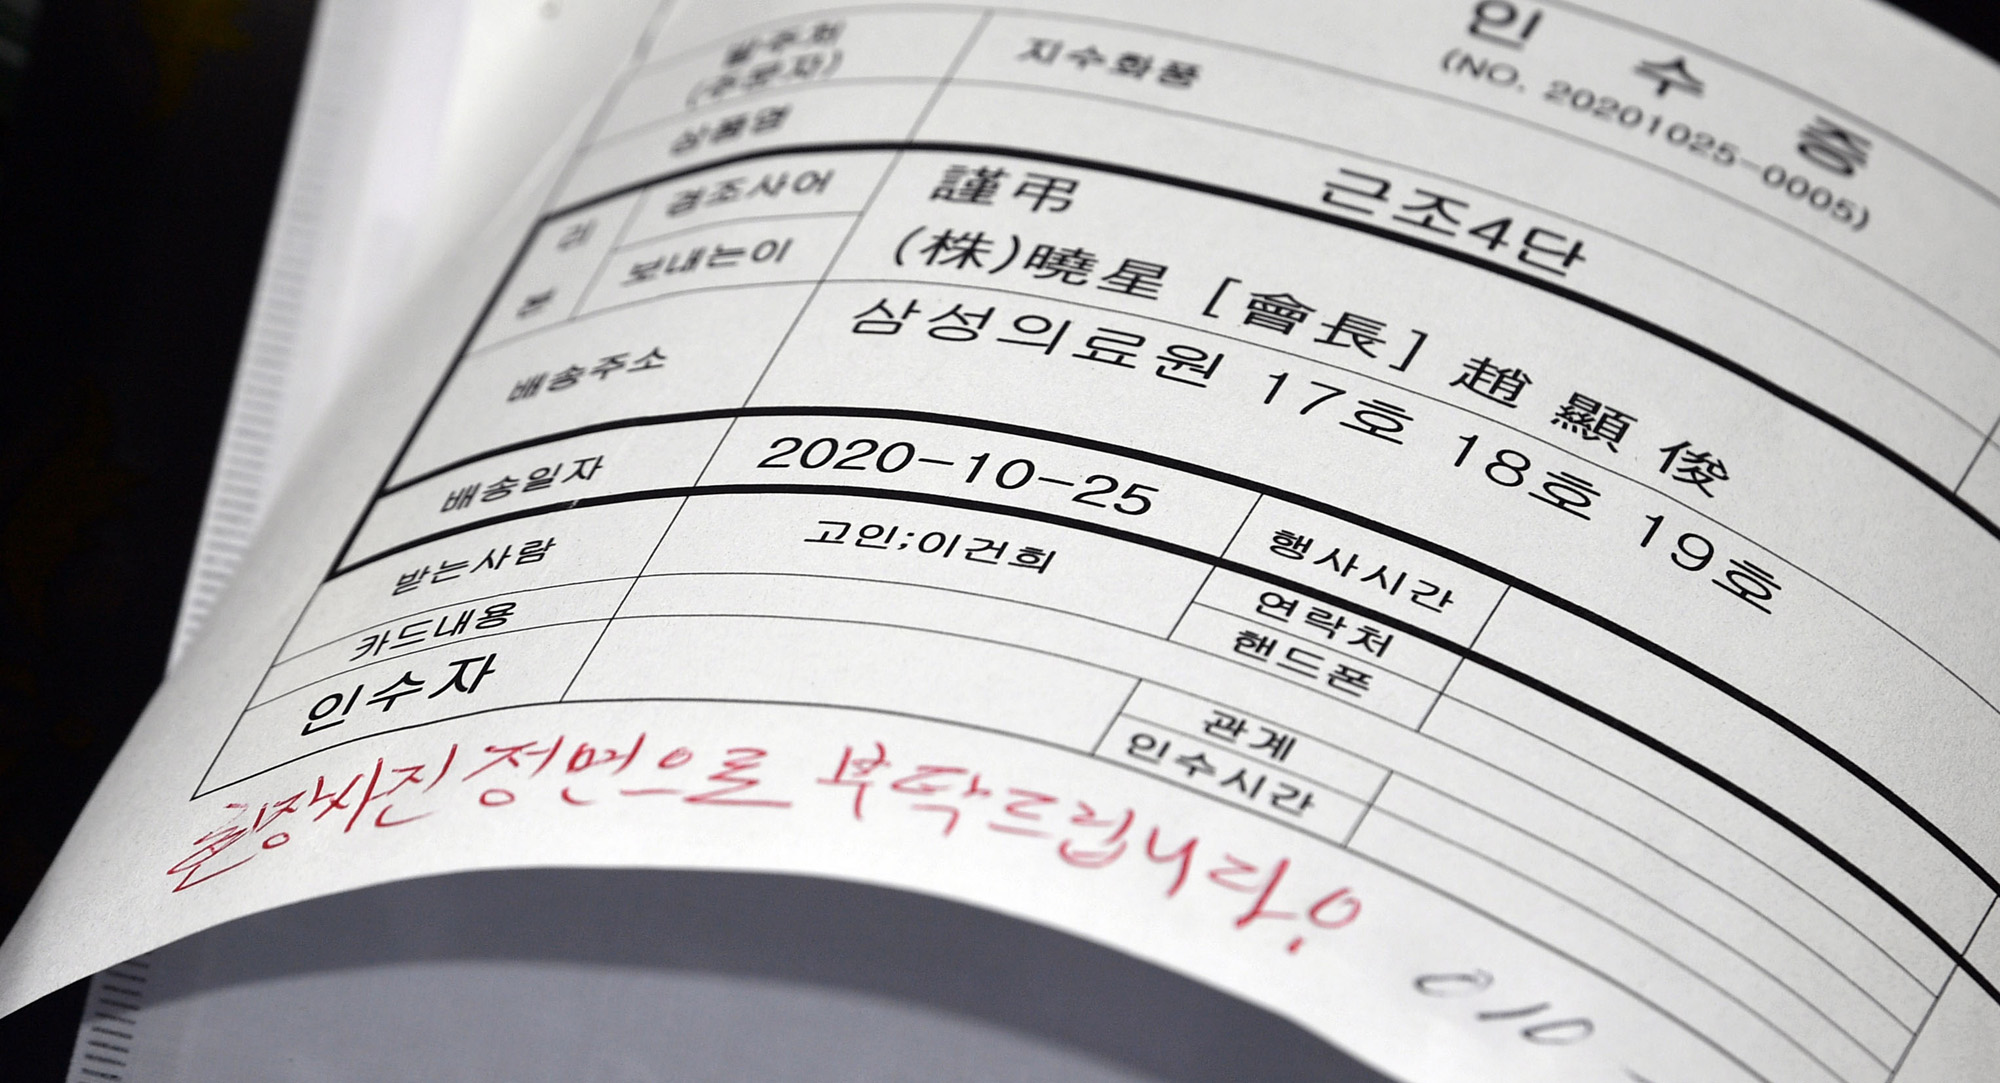 인 수 증
(NO. 20201025-0005)
(주문자) 지수화품
상품명 근조4단
리본 경조사어 謹弔
보내는이 (株)曉星 [會長] 趙 顯 俊
배송주소 삼성의료원 17호 18호 19호
배송일자 2020-10-25 행사시간
받는사람 고인;이건희 연락처
핸드폰
카드내용
인수자 관계
인수시간
현장사진 정면으로 부탁드립니다!
010